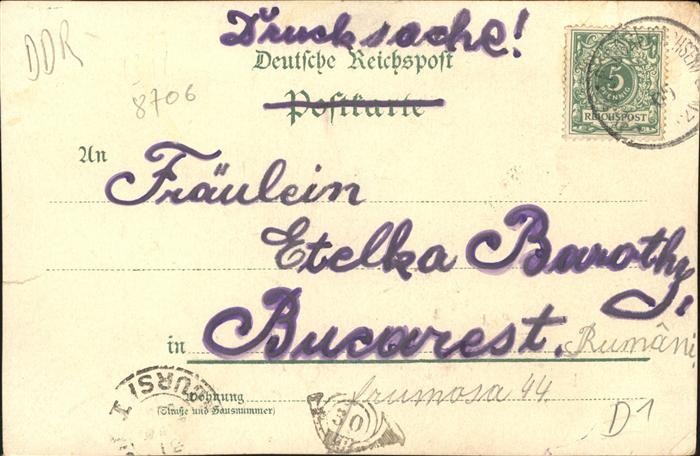 Drucksache!
DDR
Deutsche Reichspost
8706
Postkarte
5
PFENNIG
REICHSPOST
An
Fräulein
Etelka Barothy,
in Bucarest. Rumäni
Wohnung
(Straße und Hausnummer)
frumosa 44.
D1